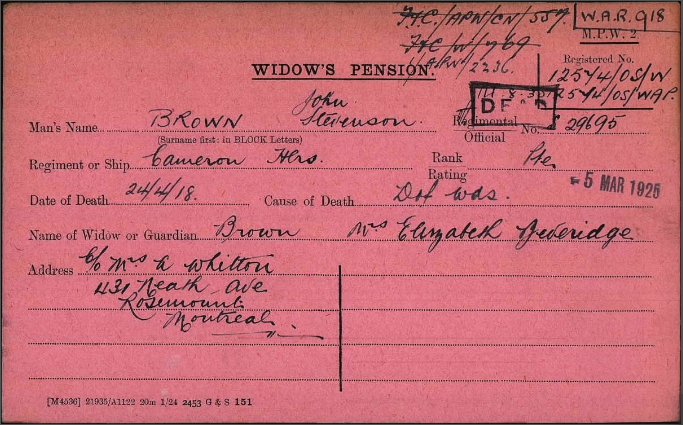 F.I.C./APW/CN/559. W.A.R. 918
F&C/W/769 M.P.W. 2
APW/2236. Registered No.
WIDOW'S PENSION. 12574/OS/W
John 11.8.30 12574/OS/WAP.
DEAD
Man's Name BROWN Stevenson. Regimental Official No. 29695
(Surname first: in BLOCK Letters)
Regiment or Ship Cameron Hrs. Rank Rating Pte.
5 MAR 1926
Date of Death 24/4/18. Cause of Death Dof wds.
Name of Widow or Guardian Brown Mrs Elizabeth Beveridge
Address C/o Mrs A Whitton
431 Neath Ave
Rosemount
Montreal.
[M4536] 21935/A1122 20m 1/24 2453 G & S 151